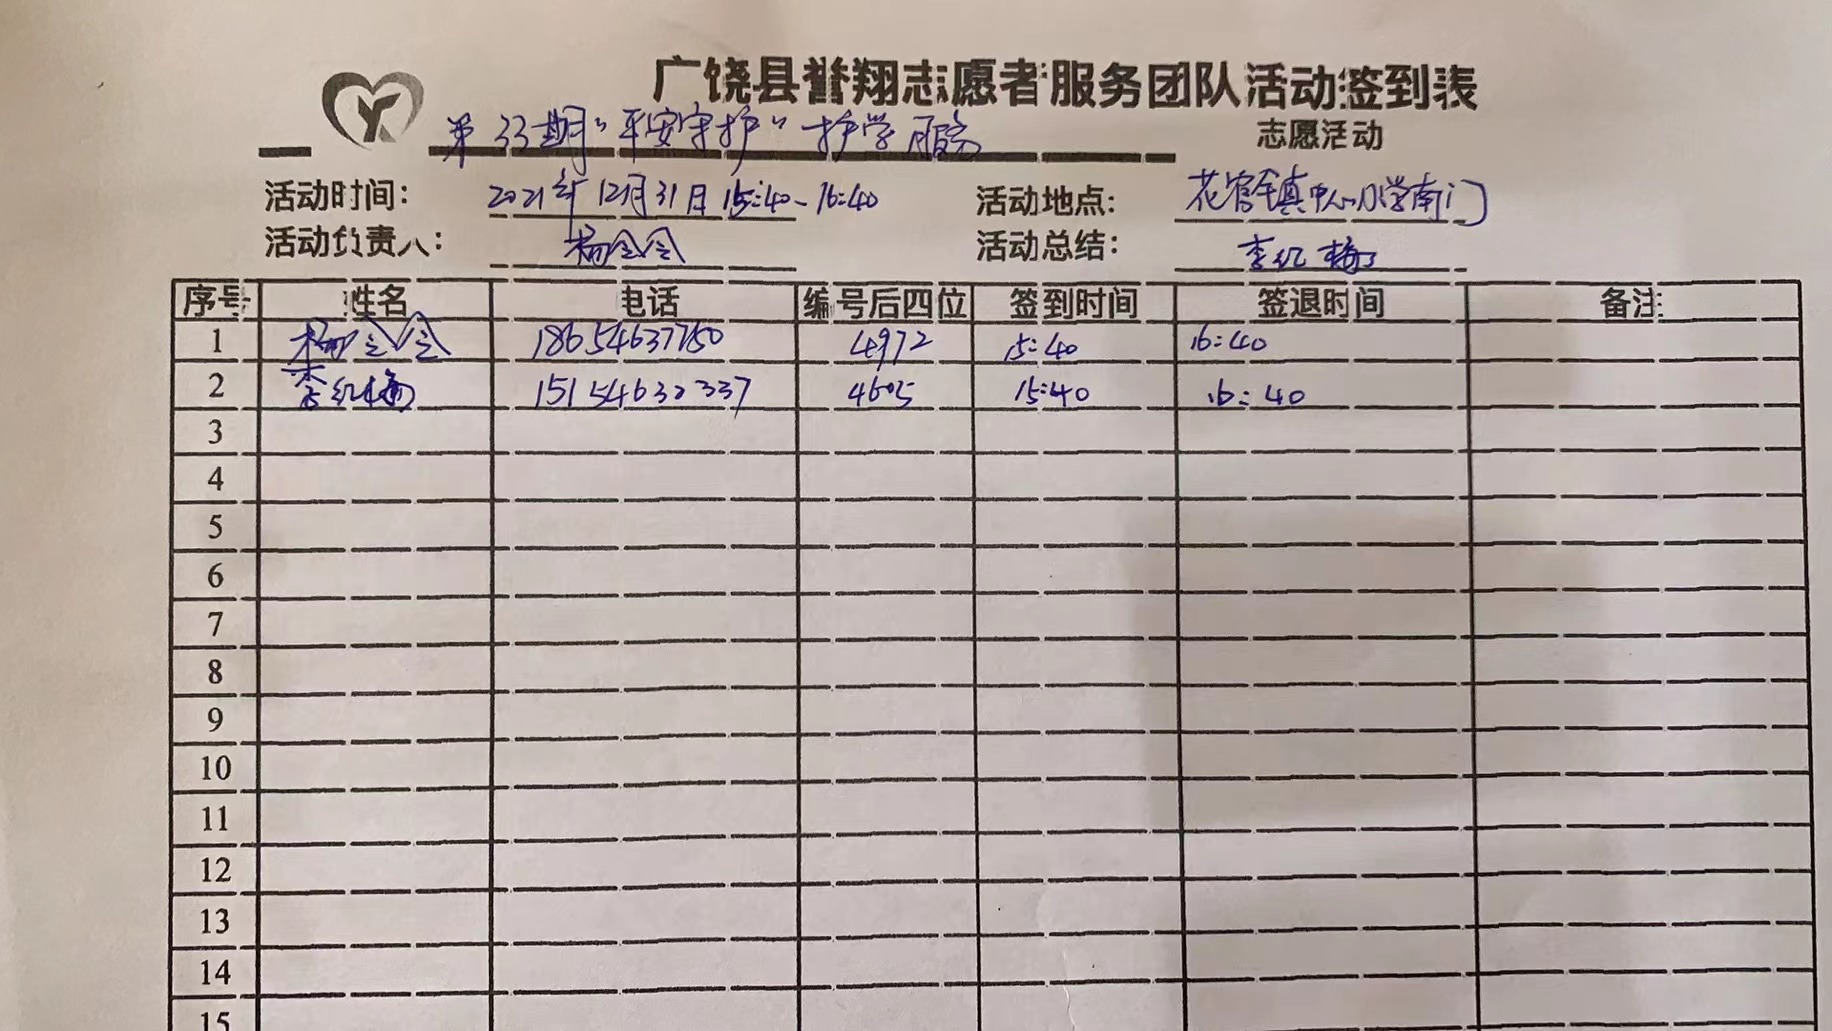 广饶县誉翔志愿者服务团队活动签到表
第33期"平安守护"护学服务 志愿活动
活动时间: 2021年12月31日 15:40-16:40 活动地点: 花官镇中心小学南门
活动负责人: 杨会会 活动总结: 李红梅
序号 姓名 电话 编号后四位 签到时间 签退时间 备注
1 杨会会 18654637750 4972 15:40 16:40
2 李红梅 15154632337 4605 15:40 16:40
3
4
5
6
7
8
9
10
11
12
13
14
15